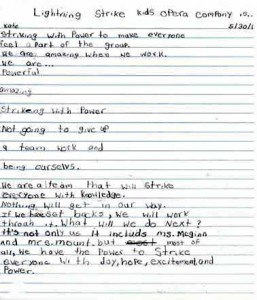 Lightning Strike kids opera company is..
Kate 5/30/1
Striking with Power to make everyone
feel a Part of the group
We are amazing when we work.
We are...
Powerful
amazing
Strikeing with Power
Not going to give up
a team work and
being ourselves.
We are a team that will Strike
everyone with knowledge.
Nothing will get in our way.
If we have set backs, we will work
through it. What will we do Next?
It's not only us it includs ms. Megian
and mrs.mount. but most of
all, we have the Power to Strike
everyone with Joy, hope, excitement, and
Power.